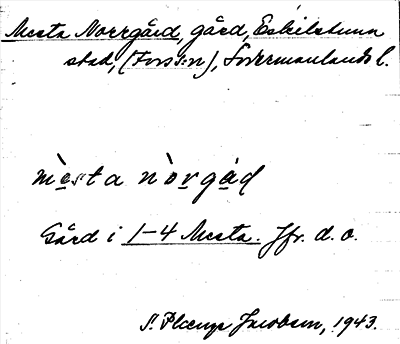 Mesta Norrgård, gård, Eskilstuna
stad, (Fors:n), Södermanlands l.
mèsta nòrgàd
Gård i 1-4 Mesta. Jfr. d. o.
S. Plænge Jacobsen, 1943.